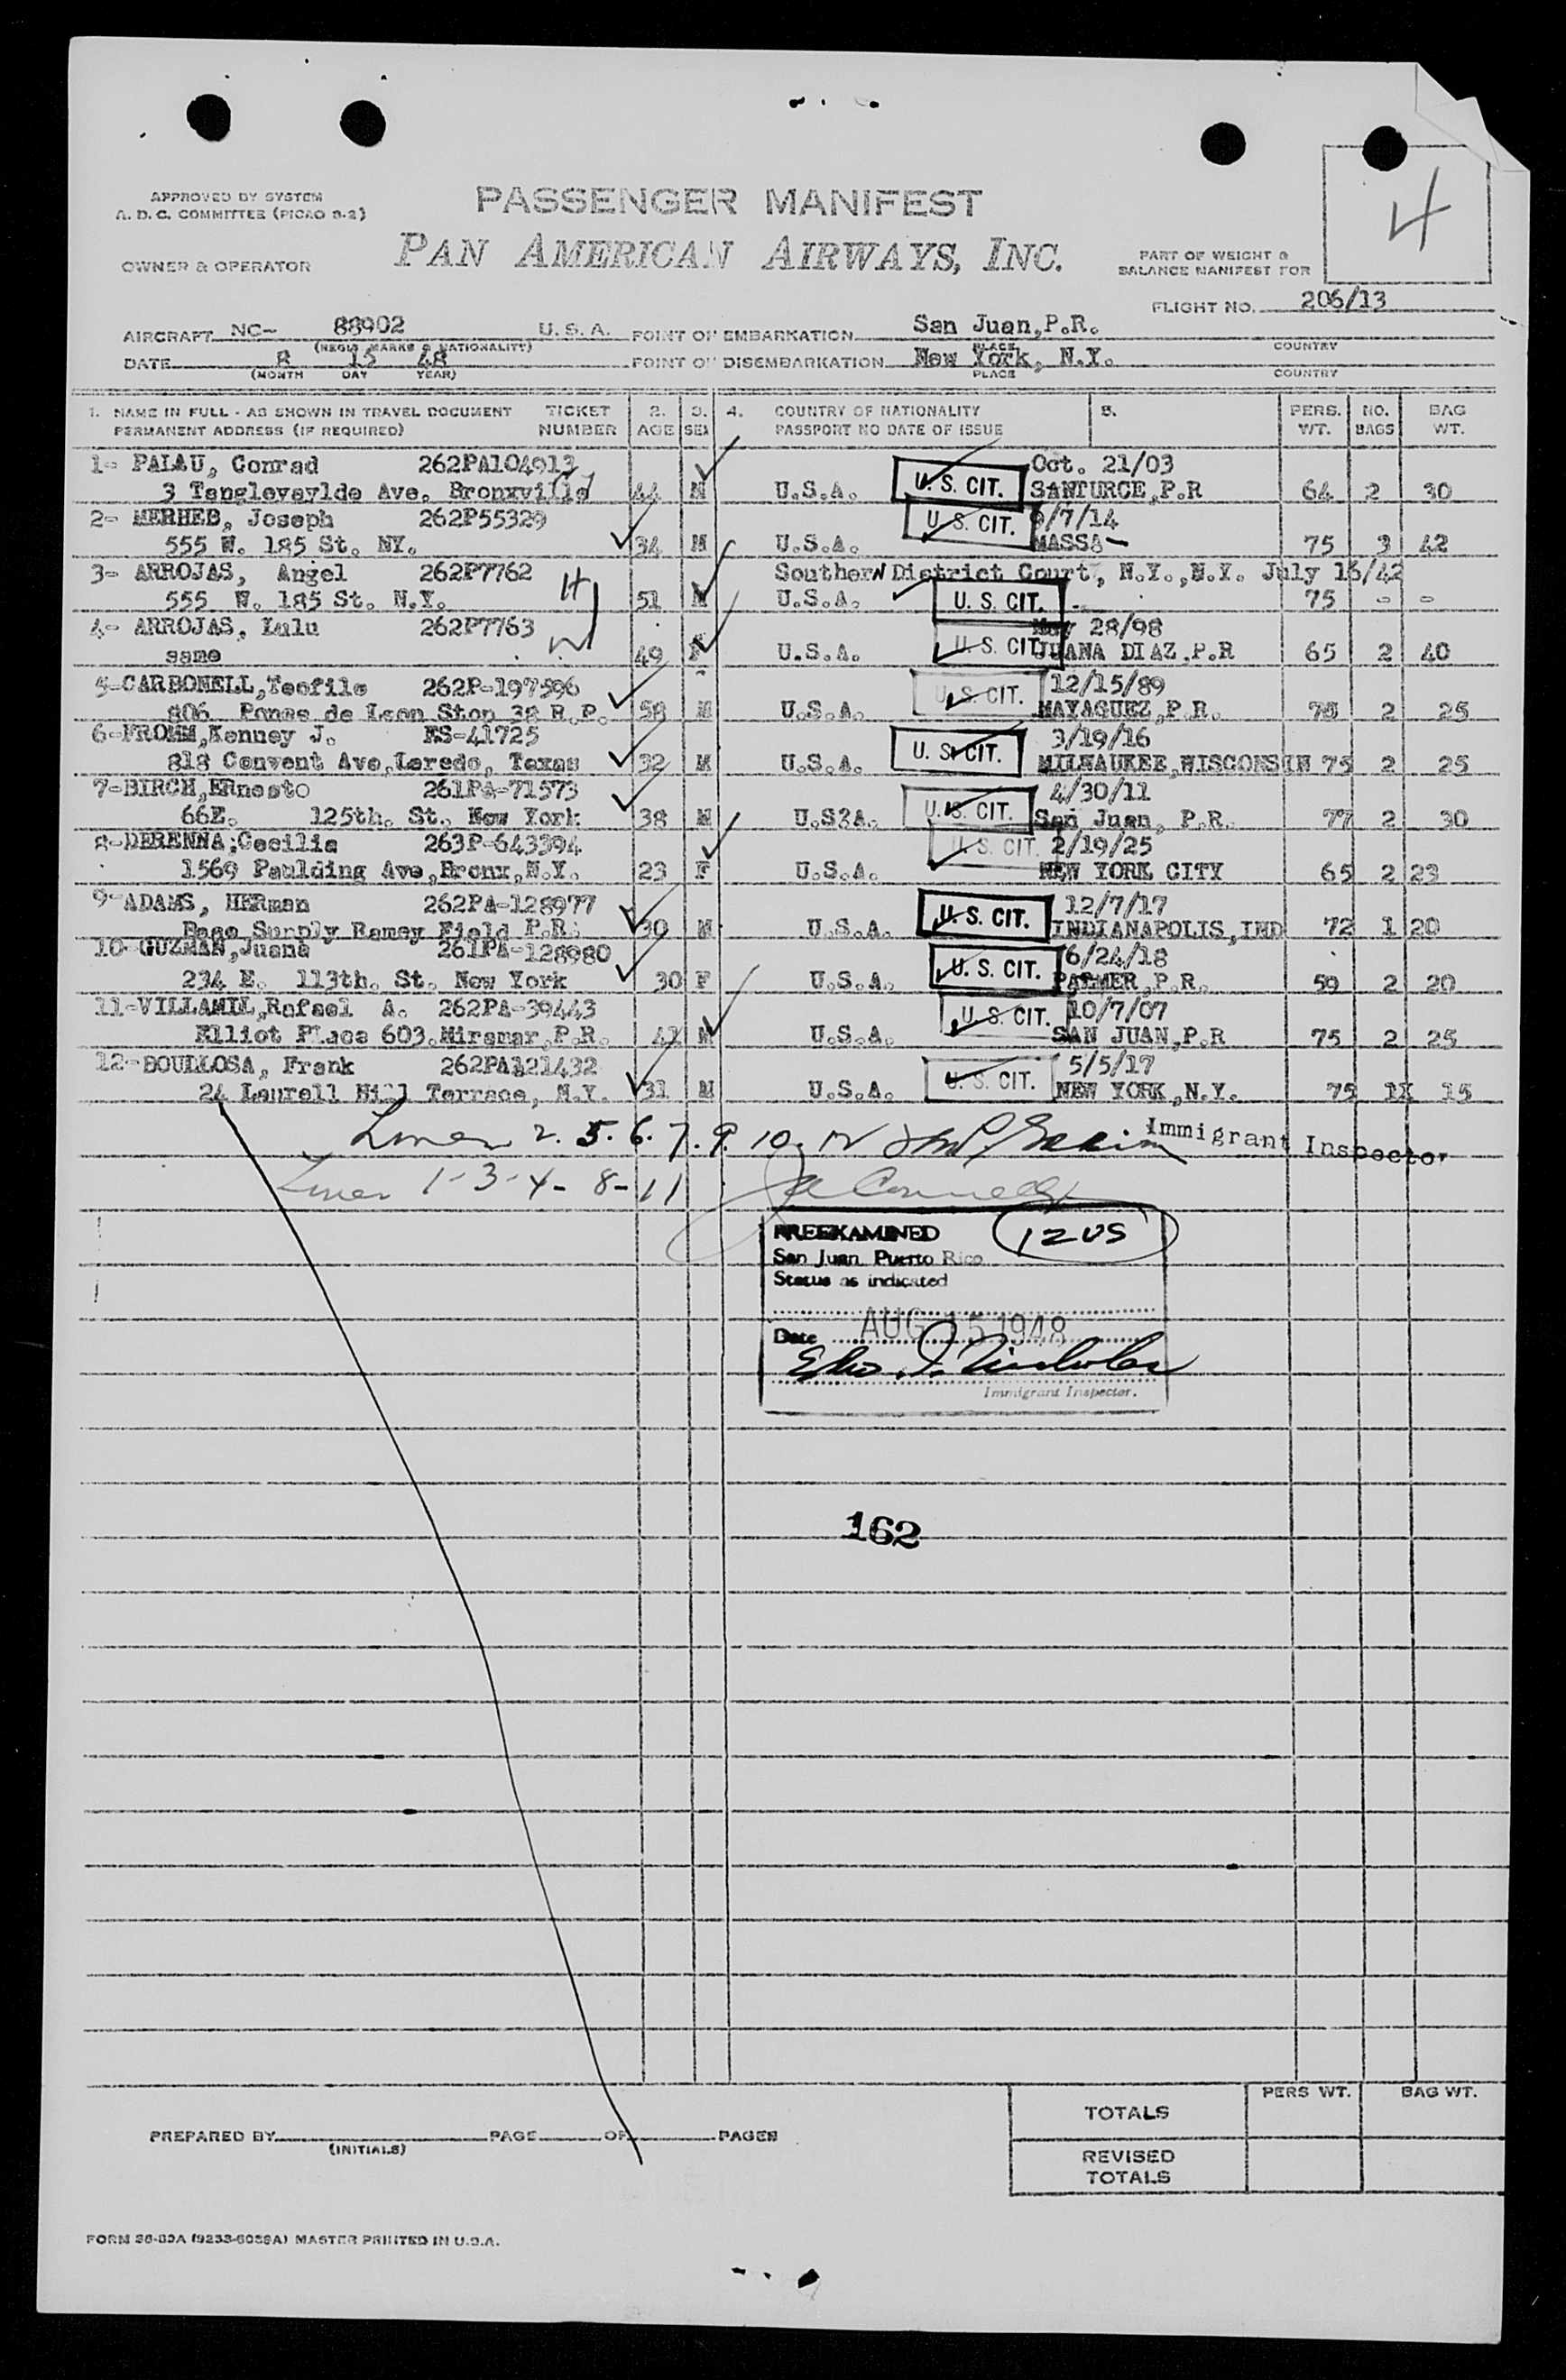 4
APPROVED BY SYSTEM
A. D. C. COMMITTEE (PICAO 9-2)
PASSENGER MANIFEST
OWNER & OPERATOR
PAN AMERICAN AIRWAYS, INC.
PART OF WEIGHT &
BALANCE MANIFEST FOR
FLIGHT NO. 206/13
AIRCRAFT NC- 88902 U. S. A. POINT OF EMBARKATION San Juan,P.R.
(REGIS MARKS & NATIONALITY) PLACE COUNTRY
DATE 8 15 48 POINT OF DISEMBARKATION New York, N.Y.
(MONTH DAY YEAR) PLACE COUNTRY
1. NAME IN FULL - AS SHOWN IN TRAVEL DOCUMENT TICKET 2. 3. 4. COUNTRY OF NATIONALITY 5. PERS. NO. BAG
PERMANENT ADDRESS (IF REQUIRED) NUMBER AGE SEX PASSPORT NO DATE OF ISSUE WT. BAGS WT.
1- PALAU, Conrad 262PA104913 Oct. 21/03
3 Tanglewaylde Ave. Bronxville 44 M U.S.A. U. S. CIT. SANTURCE,P.R 64 2 30
2- MERHEB, Joseph 262P55329 /7/14
555 W. 185 St. NY. 34 M U.S.A. U. S. CIT. MASSA 75 3 42
3- ARROJAS, Angel 262P7762 H Southern District Court, N.Y.,N.Y. July 16/42
555 W. 185 St. N.Y. 51 M U.S.A. U. S. CIT. 75 - -
4- ARROJAS, Lulu 262P7763 W May 28/98
same 49 F U.S.A. U. S. CIT. JUANA DIAZ.P.R 65 2 40
5-CARBONELL,Teofilo 262P-197596 12/15/89
806 Ponce de Leon Stop 38 R.P. 58 M U.S.A. U. S. CIT. MAYAGUEZ,P.R. 75 2 25
6-FROMM,Kenney J. ES-41725 3/19/16
818 Convent Ave,Laredo, Texas 32 M U.S.A. U. S. CIT. MILWAUKEE,WISCONSIN 75 2 25
7-BIRCH,ERnesto 261PA-71573 4/30/11
66E. 125th. St. New York 38 M U.S?A. U. S. CIT. San Juan, P.R. 77 2 30
8-DERENNA;Cecilia 263P-643394 2/19/25
1569 Paulding Ave,Bronx,N.Y. 23 F U.S.A. U. S. CIT. NEW YORK CITY 65 2 23
9-ADAMS, HERman 262PA-128977 12/7/17
Base Supply Ramey Field P.R. 30 M U.S.A. U. S. CIT. INDIANAPOLIS,IND 72 1 20
10-GUZMAN,Juana 261PA-128980 6/24/18
234 E. 113th. St. New York 30 F U.S.A. U. S. CIT. PALMER,P.R. 59 2 20
11-VILLAMIL,Rafael A. 262PA-39443 10/7/07
Elliot Place 603.Miramar,P.R. 41 M U.S.A. U. S. CIT. SAN JUAN,P.R 75 2 25
12-BOULLOSA, Frank 262PA121432 5/5/17
24 Laurell Hill Terrace, N.Y. 31 M U.S.A. U. S. CIT. NEW YORK,N.Y. 75 1X 15
Lines 2. 5. 6. 7. 9. 10. 12 Immigrant Inspector
Lines 1-3-4-8-11
PREEXAMINED 12 US
San Juan Puerto Rico
Status as indicated
Date AUG 15 1948
Immigrant Inspector.
162
PERS WT. BAG WT.
TOTALS
PREPARED BY PAGE OF PAGES
(INITIALS)
REVISED
TOTALS
MASTER PRINTED IN U.S.A.